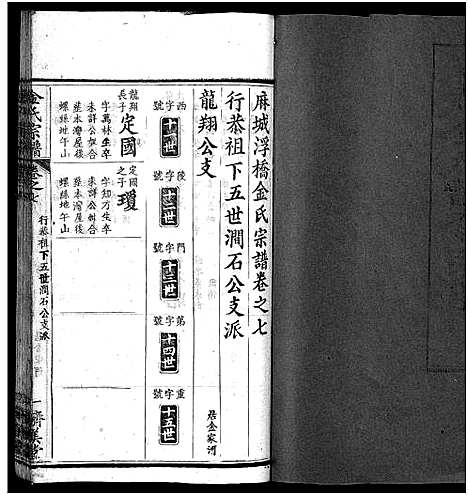 麻城浮橋金氏宗譜卷之七
行恭祖下五世澗石公支派
龍翔公支
居金家河
西字號 十一世
陵字號 十二世
門字號 十三世
第字號 十四世
重字號 十五世
龍翔長子 定國
字萬林生卒
未詳公妣合
塟本灣屋後
螺絲地午山
定國之子 瓊
字知方生卒
未詳公妣合
塟本灣屋後
螺絲地午山
金氏宗譜
卷之七
行恭祖下五世澗石公支派
一